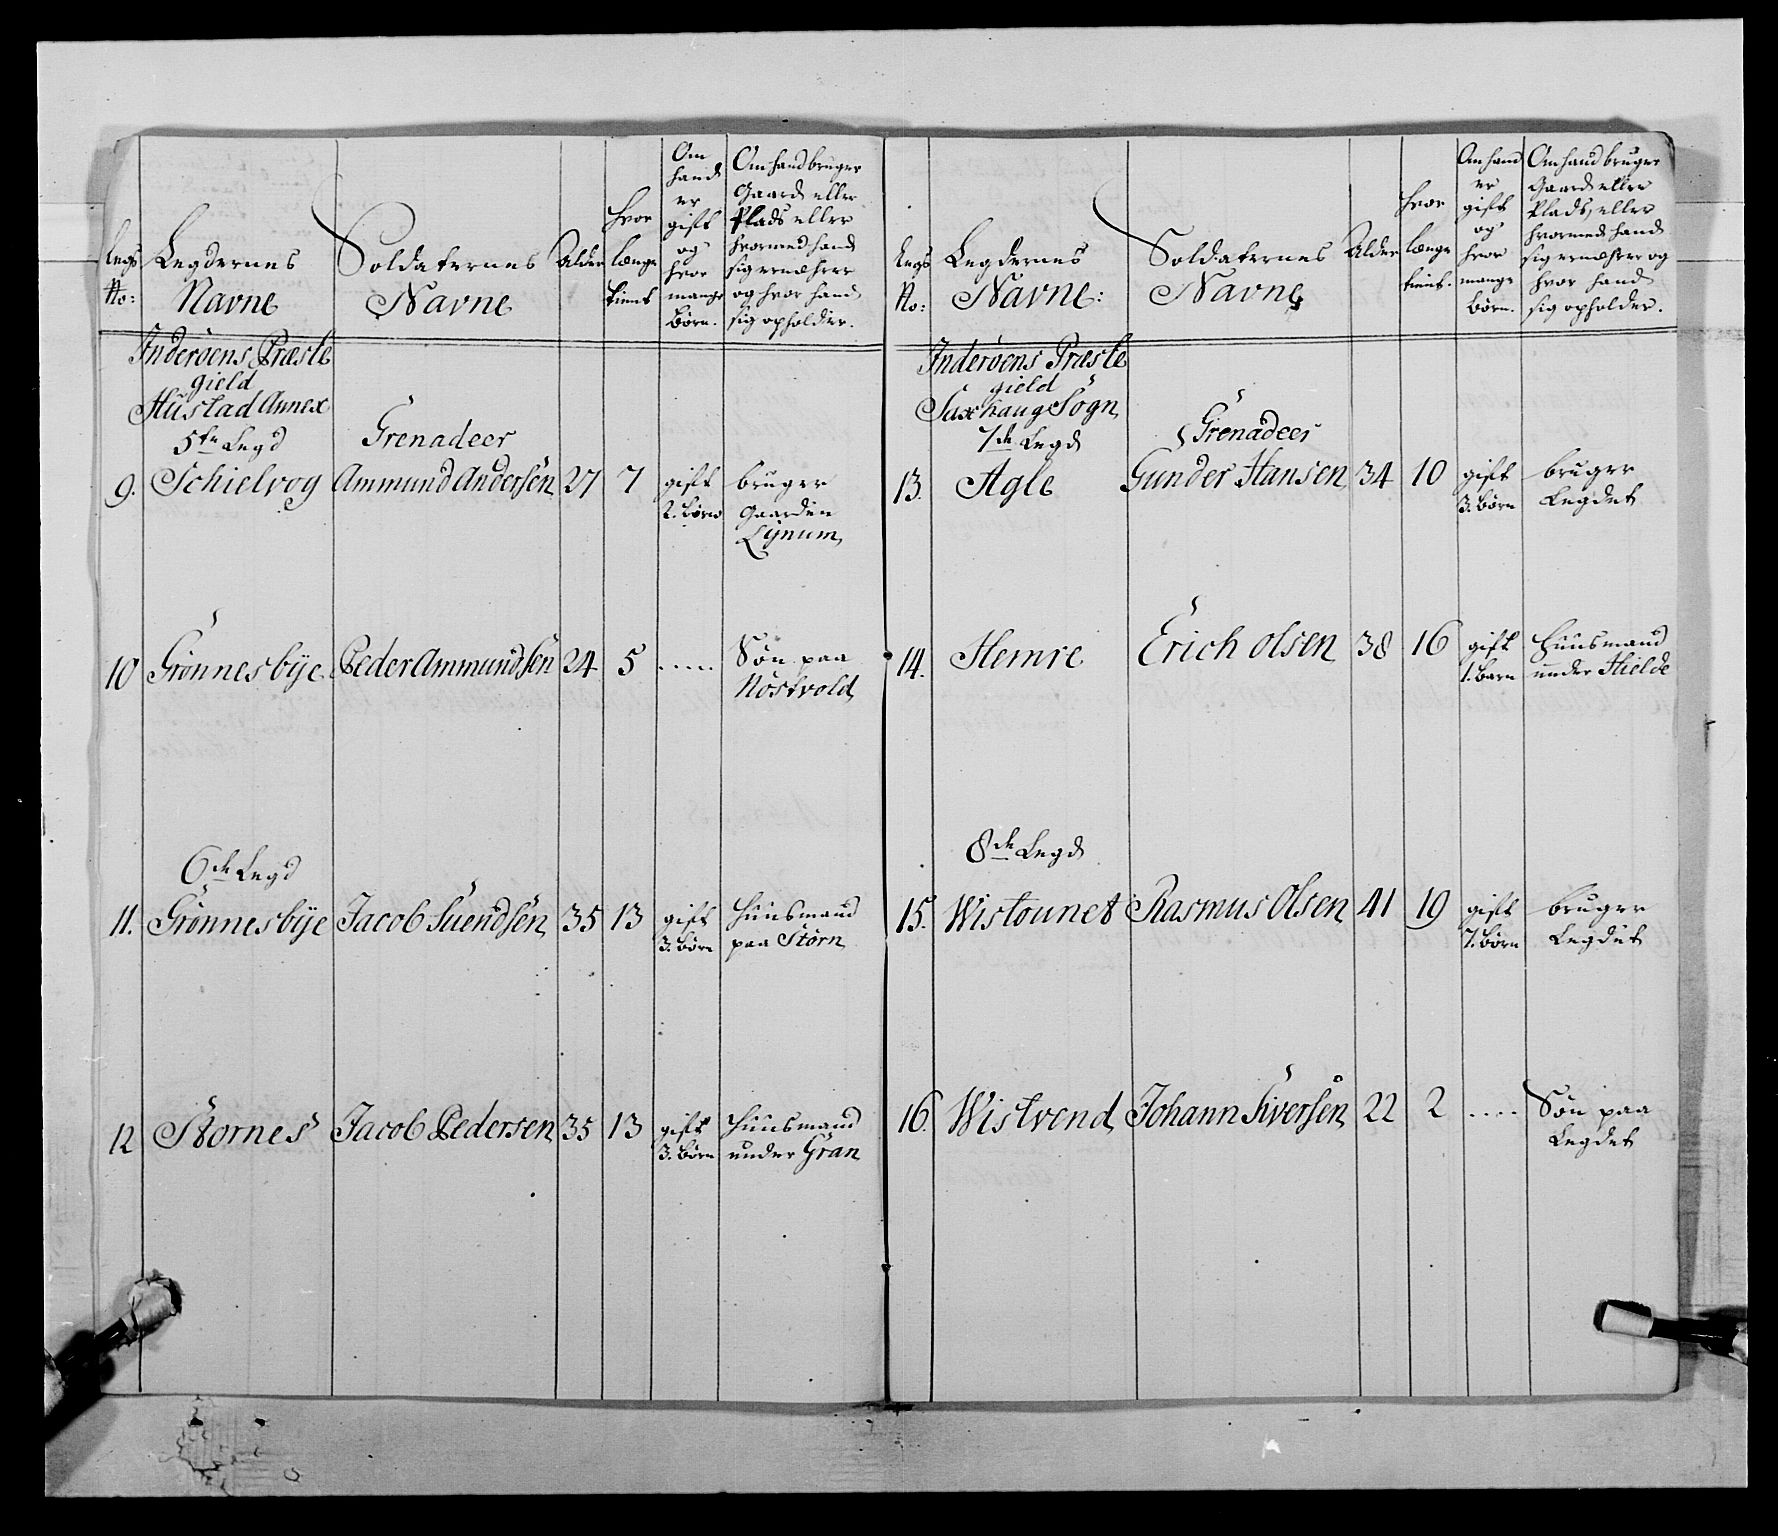 Legs No: | Legdernes Navne | Soldaternes Navne | Alder | hvor længe tient | Om hand er gift og hvor mange børn. | Om hand bruger Gaard eller Plads eller hvormed hand sig ernæhrer og hvor hand sig opholder.
Inderøens Præste
gield
Hustad Annex
5te Legd | Grenadeer
9. | Schielvog | Ammund Andersen | 27 | 7 | gift 2. børn | bruger Gaarden Lÿnum
10 | Grønnesbÿe | Peder Ammundsen | 24 | 5 | ..... | Søn paa Nøstvold
6de Legd
11. | Grønnesbÿe | Jacob Suendsen | 35 | 13 | gift 3. børn | Huusmand paa Størn
12 | Stornes | Jacob Pedersen | 35 | 13 | gift 3. børn | Huusmand under Gran
Legs No: | Legdernes Navne: | Soldaternes Navne | Alder | hvor længe tient. | Om hand er gift og hvor mange børn. | Om hand bruger Gaard eller Plads, eller hvormed hand sig ernæhrer og hvor hand sig opholder.
Inderøens Præste
gield
Saxhaug Sogn
7de Legd | Grenadeer
13. | Agle | Gunder Hansen | 34 | 10 | gift 3. børn | bruger Legdet
14. | Hemre | Erich Olsen | 38 | 16 | gift 1. barn | Huusmand under Hielde
8de Legd
15. | Wistounet | Rasmus Olsen | 41 | 19 | gift 7. børn | bruger Legdet
16. | Wistvend | Johann Siversen | 22 | 2 | .... | Søn paa Legdet